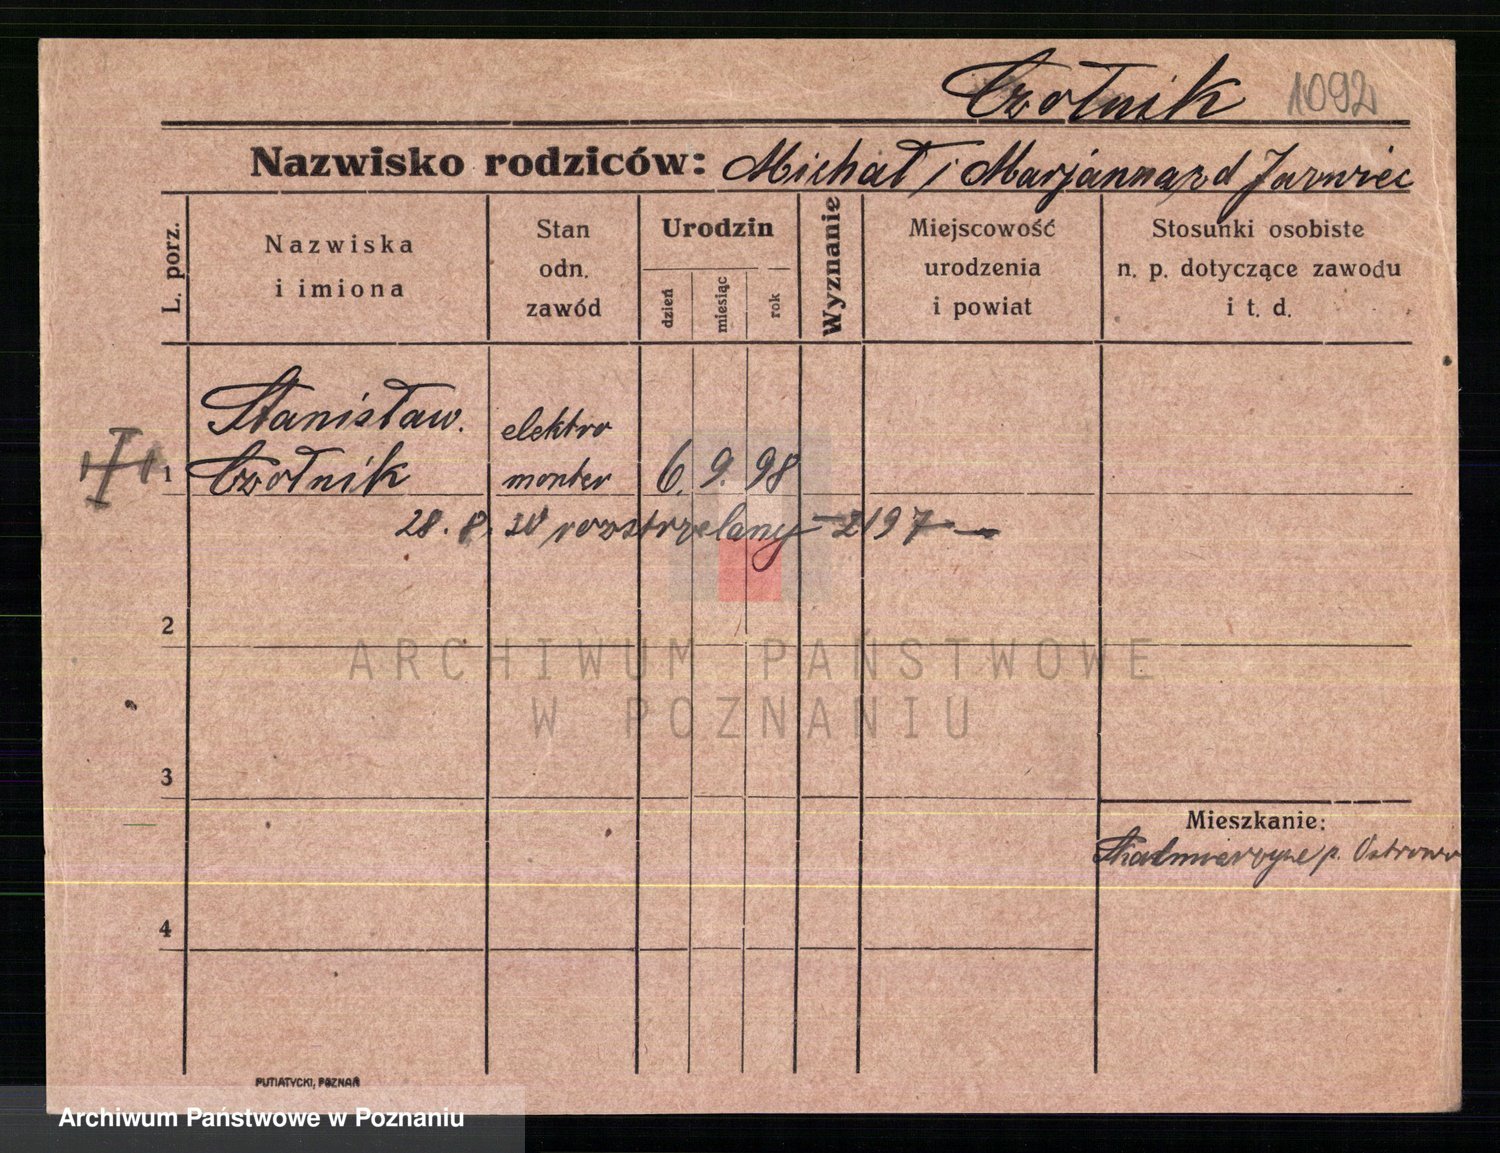 Czołnik 1092
Nazwisko rodziców: Michał i Marjanna z d Jarwiec
L. porz.
Nazwiska
i imiona
Stan
odn.
zawód
Urodzin
dzień
miesiąc
rok
Wyznanie
Miejscowość
urodzenia
i powiat
Stosunki osobiste
n. p. dotyczące zawodu
i t. d.
Stanisław. elektro
1 Czołnik monter 6. 9. 98
28. 8. rozstrzelany – 2197 –
2
ARCHIWUM PAŃSTWOWE
W POZNANIU
3
Mieszkanie:
Skalmierzyce p. Ostrowo
4
PUTIATYCKI, POZNAŃ
Archiwum Państwowe w Poznaniu